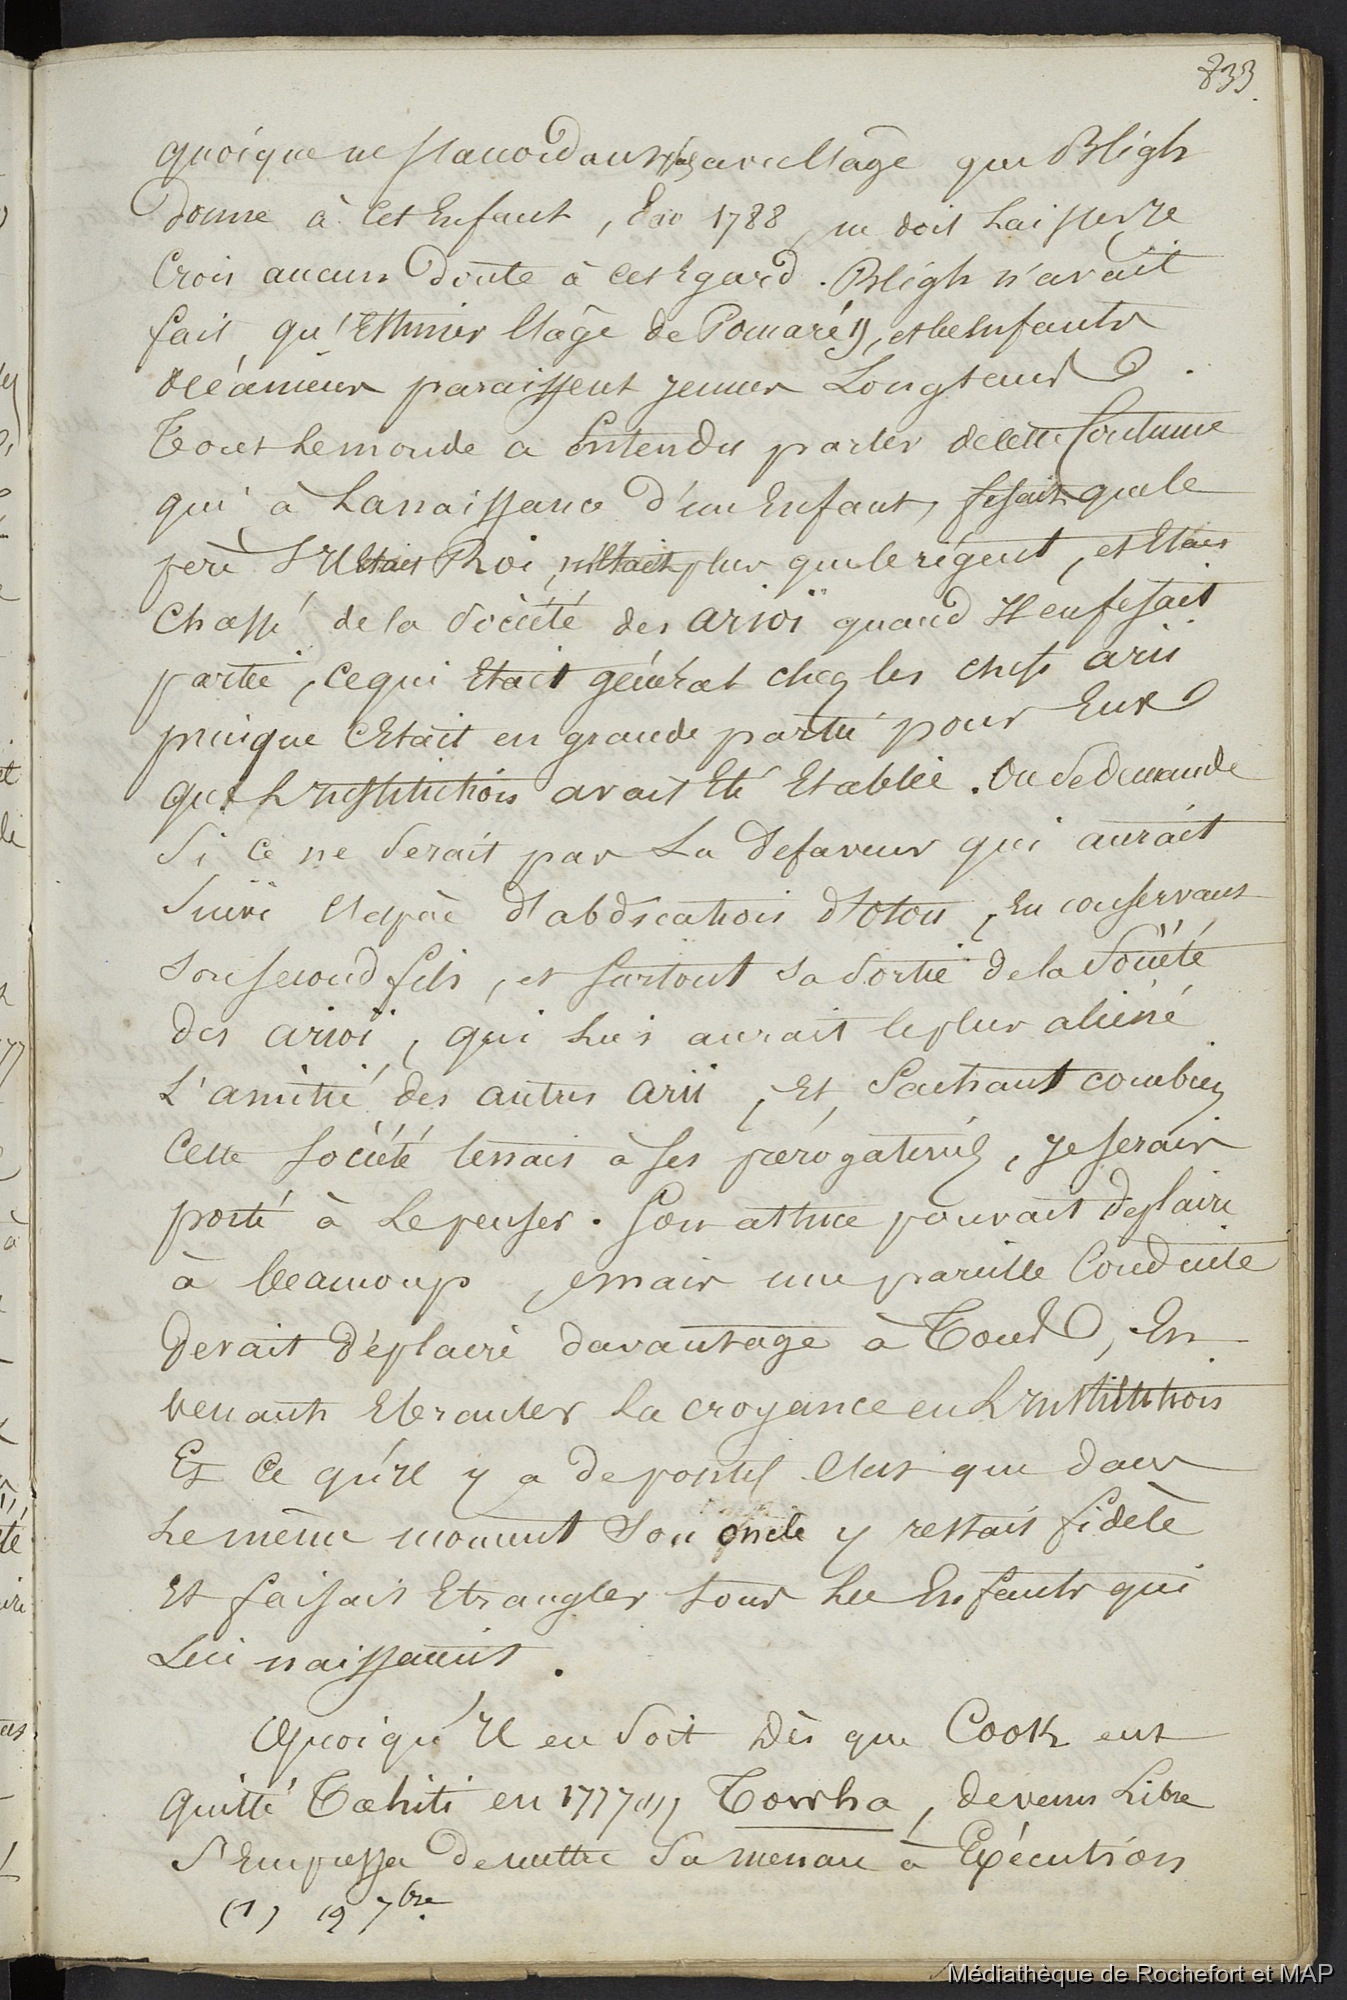 833.
quoique ne s'accordant pas avec l'age que Bligh
donne à cet Enfant, En 1788, ne doit Laisser Je
Crois aucun Doute à cet Egard. Bligh n'avait
fait qu'Estimer l'âge de Pomaré II, et les Enfants
océaniens paraissent jeunes Longtems.
Tout le monde a Entendu parler de cette Coutume
qui à La naissance d'un Enfant, fesait que le
père S'Il était Roi, n'était plus que le régent, et Etait
Chassé de la Société des arioï quand Il en fesait
partie, ce qui Etait général chez les chefs arii
puisque C'Etait en grande partie pour Eux
que L'Institution avait Eté Etablie. On se demande
Si ce ne Serait pas La défaveur qui aurait
Suivi l'espèce d'abdication d'Otou, En conservant
son second fils, et surtout sa Sortie de la Société
des arioï, qui Lui aurait le plus aliéné
L'amitié des autres arii, Et, Sachant combien
Cette Société tenait à ses prérogatives, Je serais
porté à Le penser. Son astuce pouvait déplaire
à beaucoup, mais une pareille Conduite
Devait Déplaire davantage à Tous, En
venant Ebranler La croyance en L'Institution
Et Ce qu'Il y a de positif C'est que dans
Le même moment Son oncle y restait fidèle
Et faisait Etrangler tous Les Enfants qui
Lui naissaient.
Quoiqu'Il en Soit Dès que Cook eut
quitté Taehiti en 1777 (1), Towha, devenu Libre
S'Empressa de mettre Sa menace à Exécution
(1) 29 7bre.
Médiathèque de Rochefort et MAP